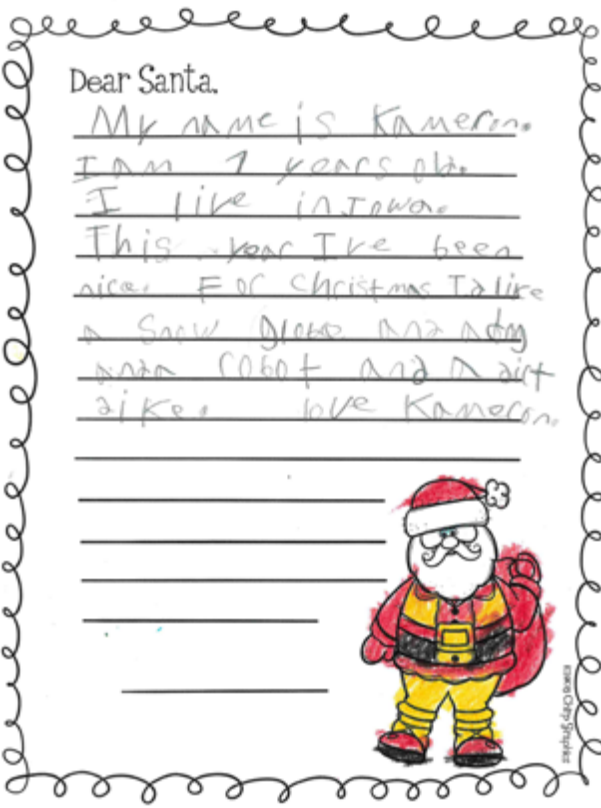 Dear Santa,
My name is Kameron.
I am 7 years old.
I live in Iowa.
This year I've been
nice. For Christmas I'd like
a snow globe and a dog
and a robot and a dirt
bike. love Kameron.